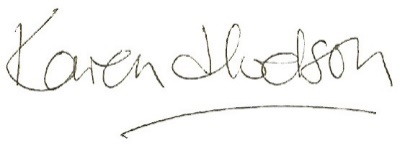 Karen Hodson